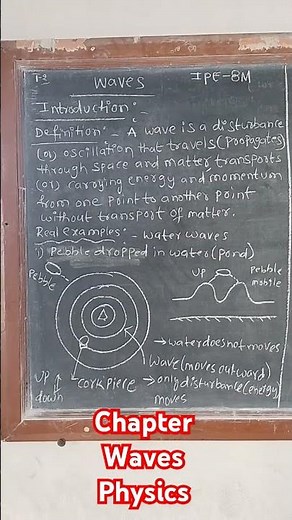 T-2 Waves IPE-8M
Introduction:-
Definition:- A wave is a disturbance
(or) oscillation that travels (propagates)
through space and matter transports
(or) carrying energy and momentum
from one point to another point
without transport of matter.
Real examples:- water waves
i) Pebble dropped in water (pond)
Pebble
UP
Pebble
mobile
→ water does not moves
wave (moves outward)
UP
down
cork piece
→ only disturbance (energy)
moves
Chapter
Waves
Physics